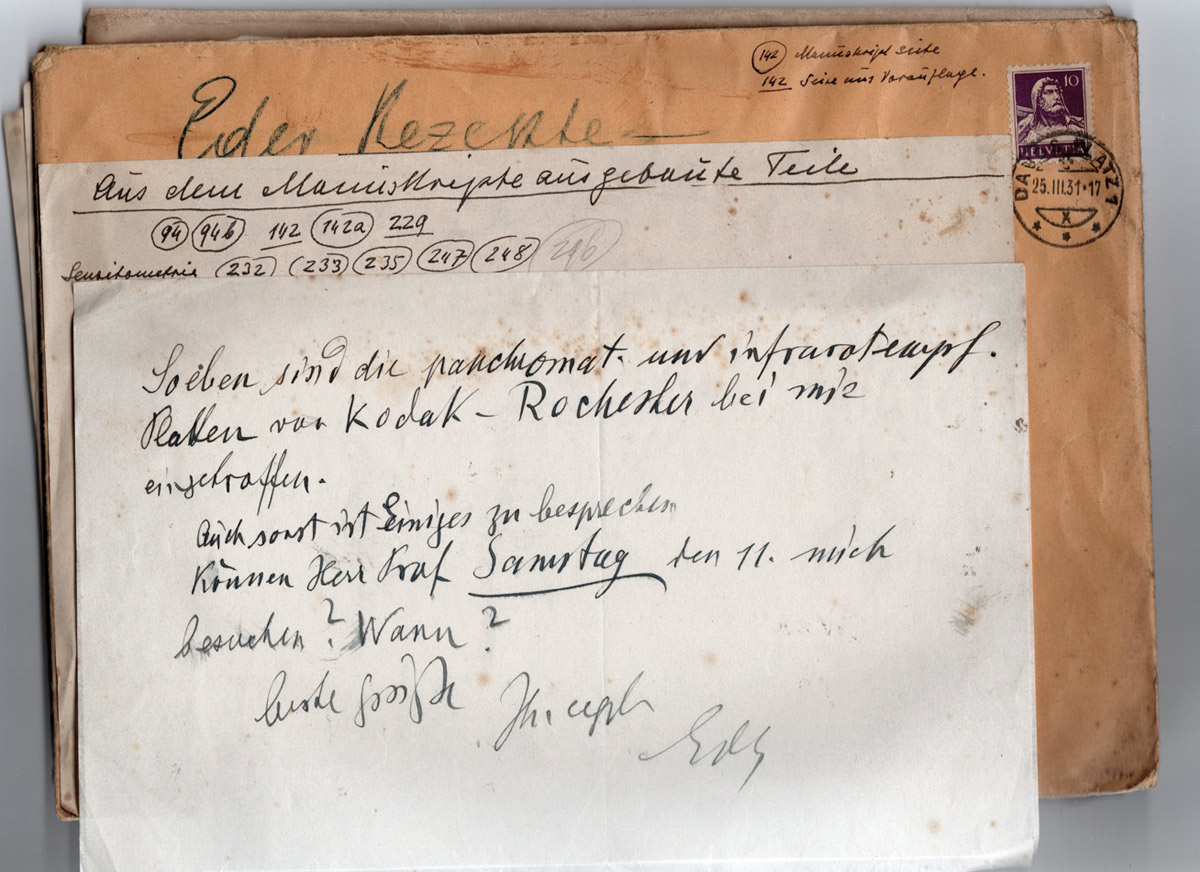 (142) Manuskript Seite
142 Seite aus Vorauflage.
Eder Rezepte
10
HELVETIA
25.III.31·17
X
Aus dem Manuskripte ausgebaute Teile
94 94b 142 142a 229
Sensitometrie 232 233 235 247 248 296
Soeben sind die panchromat. und infrarotempf.
Platten von Kodak - Rochester bei mir
eingetroffen.
Auch sonst ist Einiges zu besprechen
Können Herr Prof Samstag den 11. mich
besuchen? Wann?
beste Grüße
Eder